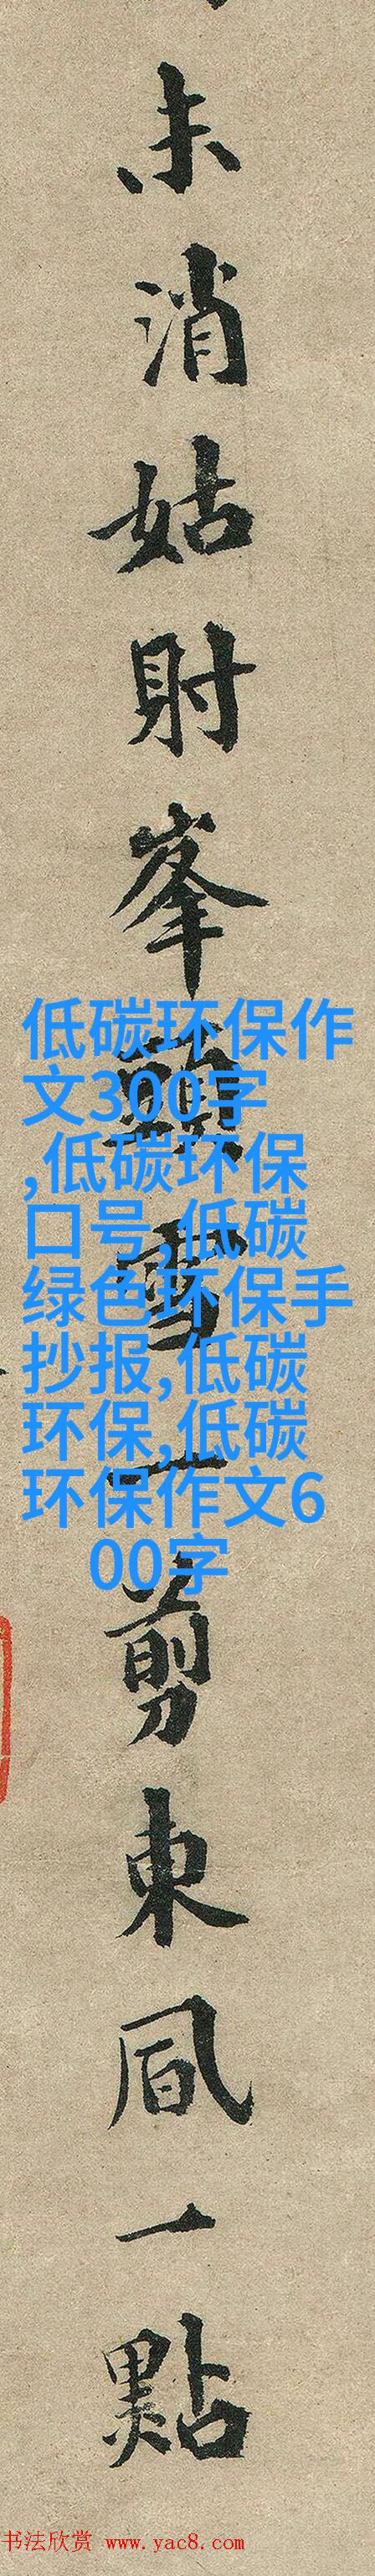 未消姑射峯頭雪一剪東風一點
低碳环保作
文300字
,低碳环保
口号,低碳
绿色环保手
抄报,低碳
环保,低碳
环保作文6
00字
书法欣赏 www.yac8.com